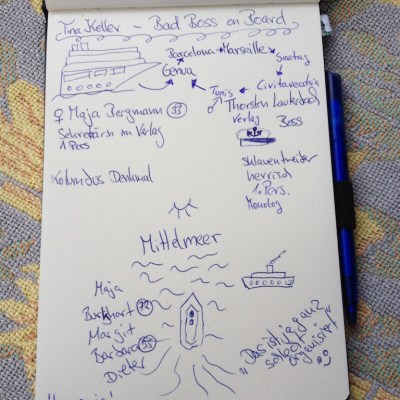 Tina Keller - Bad Boss on Board
Barcelona → Marseille
Seetag
Genua
Civitavecchia
Tunis
♀ Maja Bergmann 33
♂ Thorsten
Sekretärin im Verlag
Verlag
Boss
1. Pers
Sklaventreiber
herrisch
1. Pers.
Monolog
Kolumbus Denkmal
Mittelmeer
Maja
Burkhart 72
Margit
Barbara 55
Dieter
"Das ist ja ganz
solo
organisiert"